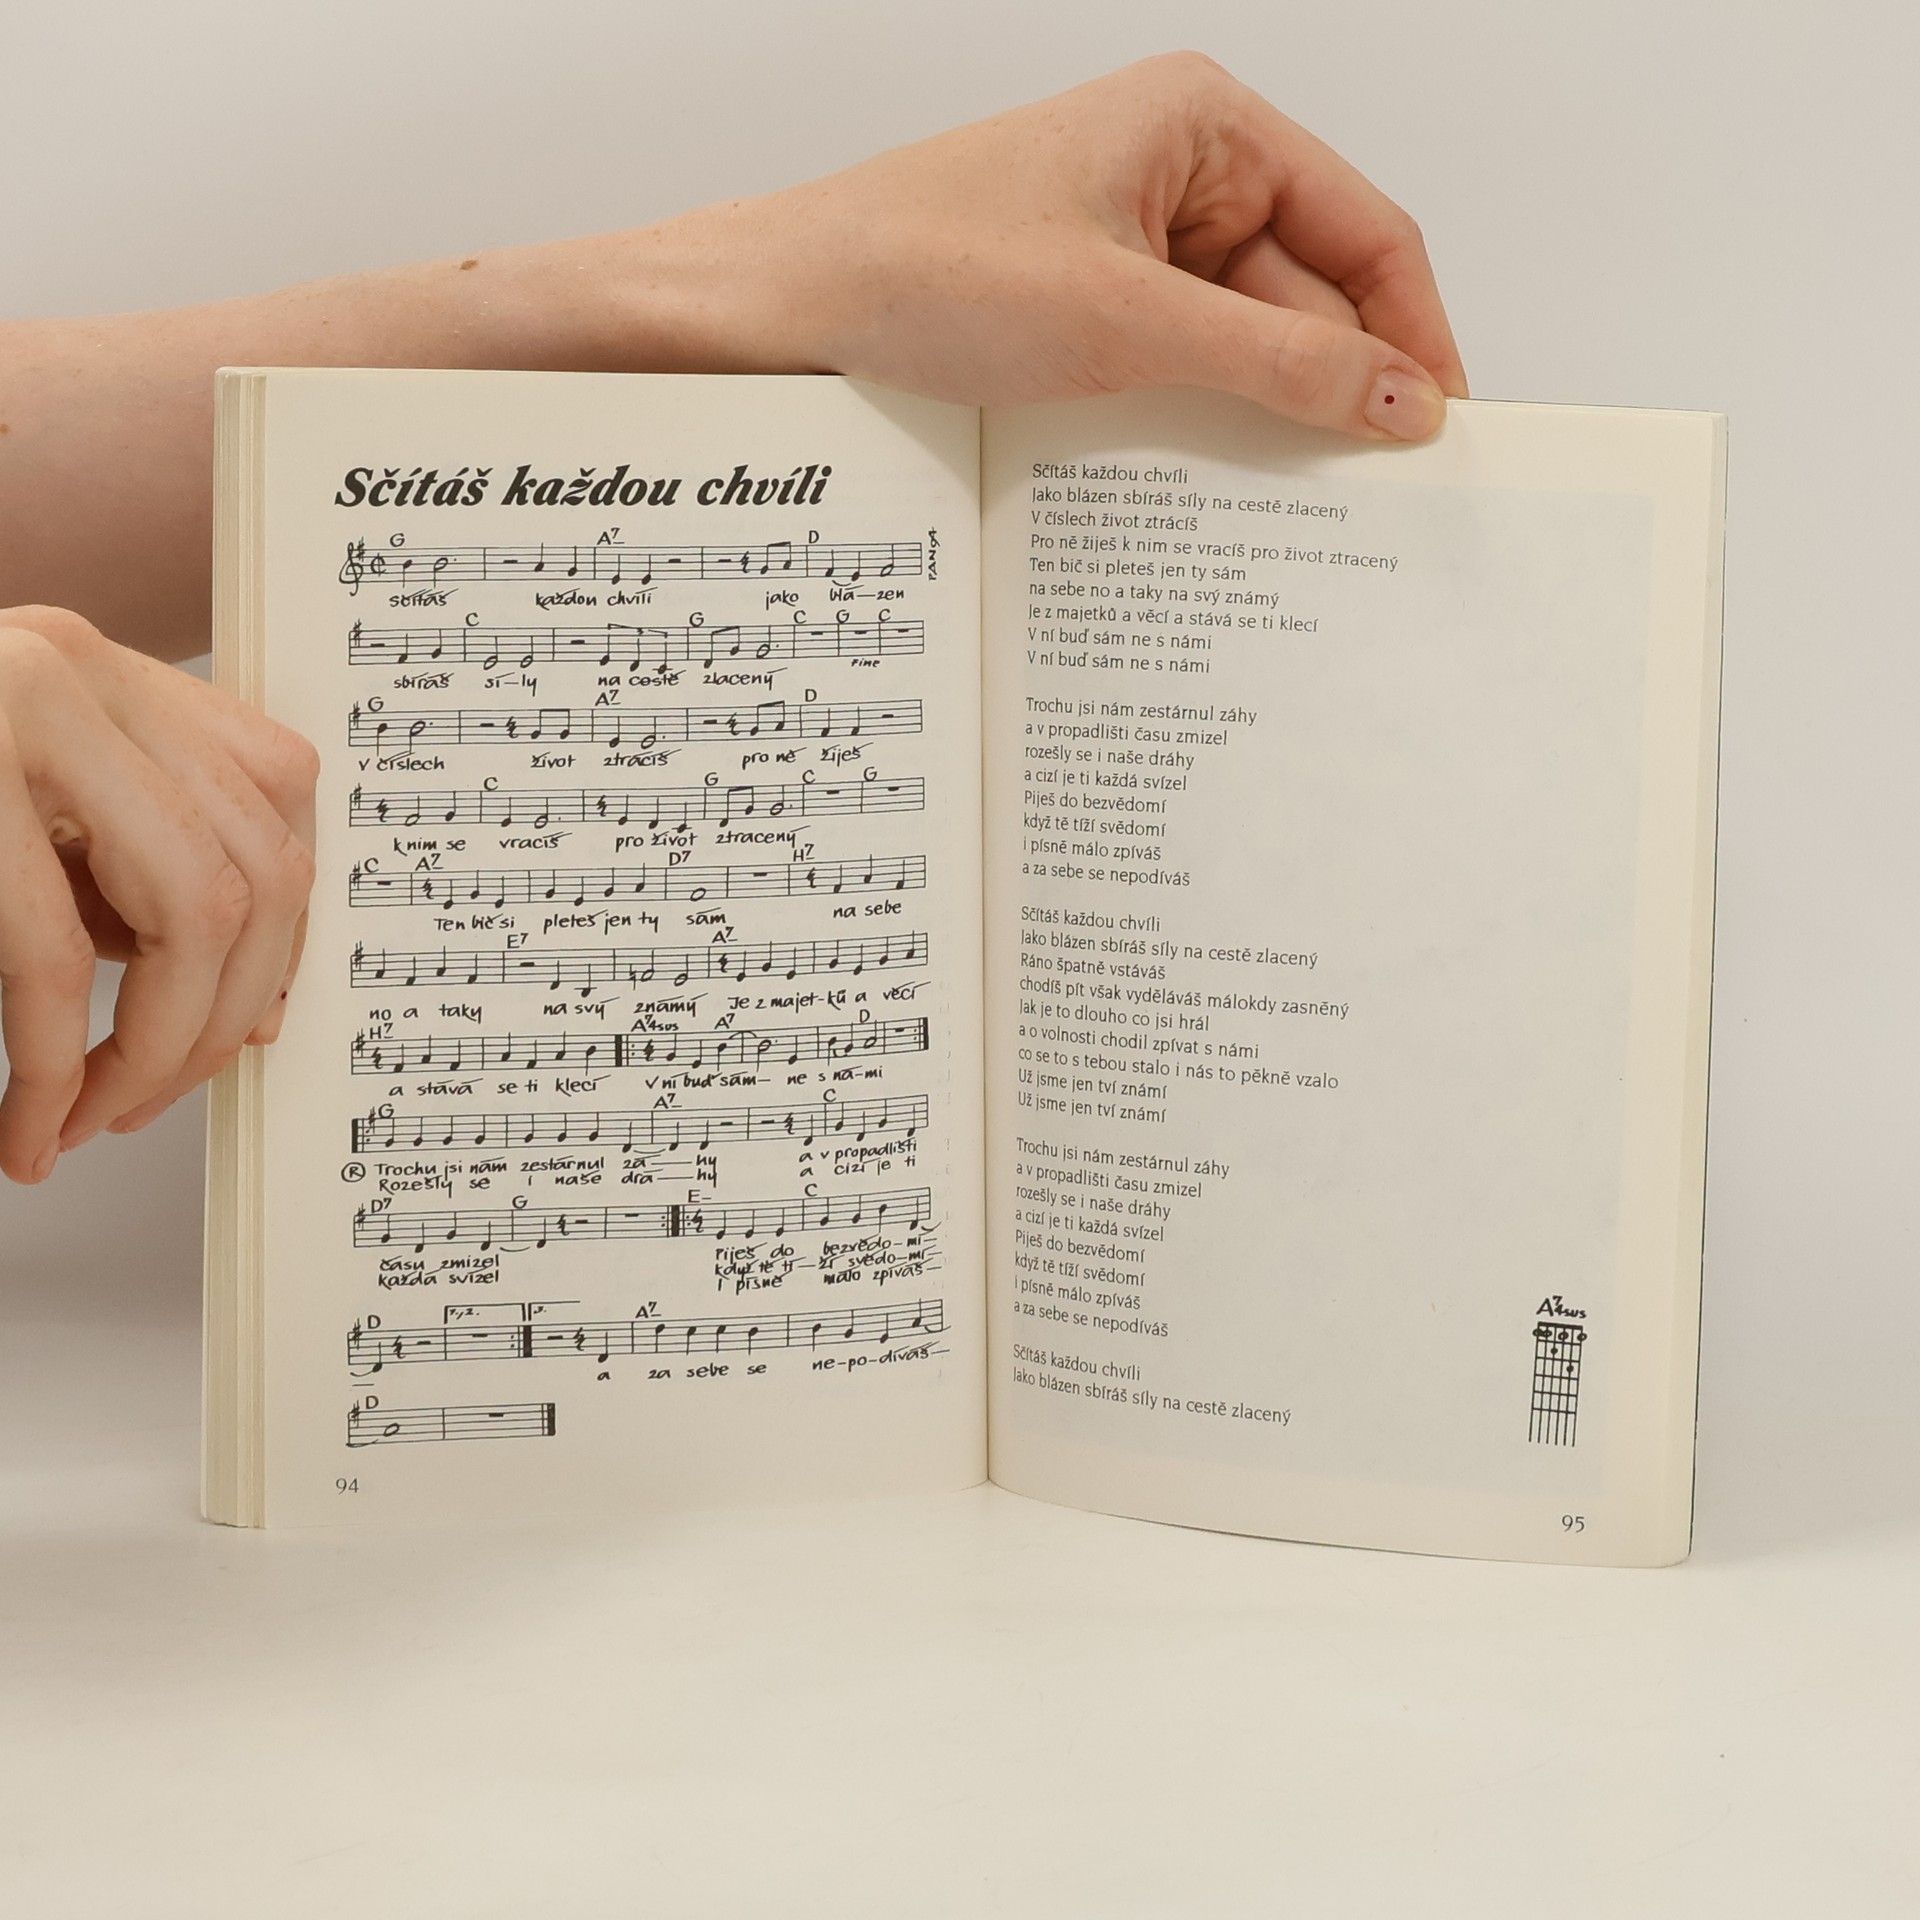 Sčítáš každou chvíli
G A7 D
PAN94
sčítáš každou chvíli jako blá—zen
C G C G C
Fine
sbíráš sí—ly na cestě zlacený
G A7 D
v číslech život ztrácíš pro ně žiješ
C G C G
k nim se vracíš pro život ztracený
C A7 D7 H7
Ten bič si pleteš jen ty sám na sebe
E7 A7
no a taky na svý známý Je z majet-ků a věcí
H7 A74sus A7 D
a stává se ti klecí V ní buď sám— ne s ná-mi
G A7 C
® Trochu jsi nám zestárnul zá—hy a v propadlišti
Rozešly se i naše drá—hy a cizí je ti
D7 G E- C
času zmizel Piješ do bezvědo-mí—
každá svízel když tě tí—ží svědo-mí—
i písně málo zpíváš—
D 1., 2. 3. A7
a za sebe se ne-po-díváš—
D
94
Sčítáš každou chvíli
Jako blázen sbíráš síly na cestě zlacený
V číslech život ztrácíš
Pro ně žiješ k nim se vracíš pro život ztracený
Ten bič si pleteš jen ty sám
na sebe no a taky na svý známý
Je z majetků a věcí a stává se ti klecí
V ní buď sám ne s námi
V ní buď sám ne s námi
Trochu jsi nám zestárnul záhy
a v propadlišti času zmizel
rozešly se i naše dráhy
a cizí je ti každá svízel
Piješ do bezvědomí
když tě tíží svědomí
i písně málo zpíváš
a za sebe se nepodíváš
Sčítáš každou chvíli
Jako blázen sbíráš síly na cestě zlacený
Ráno špatně vstáváš
chodíš pít však vyděláváš málokdy zasněný
Jak je to dlouho co jsi hrál
a o volnosti chodil zpívat s námi
co se to s tebou stalo i nás to pěkně vzalo
Už jsme jen tví známí
Už jsme jen tví známí
Trochu jsi nám zestárnul záhy
a v propadlišti času zmizel
rozešly se i naše dráhy
a cizí je ti každá svízel
Piješ do bezvědomí
když tě tíží svědomí
i písně málo zpíváš
a za sebe se nepodíváš
Sčítáš každou chvíli
Jako blázen sbíráš síly na cestě zlacený
A74sus
95